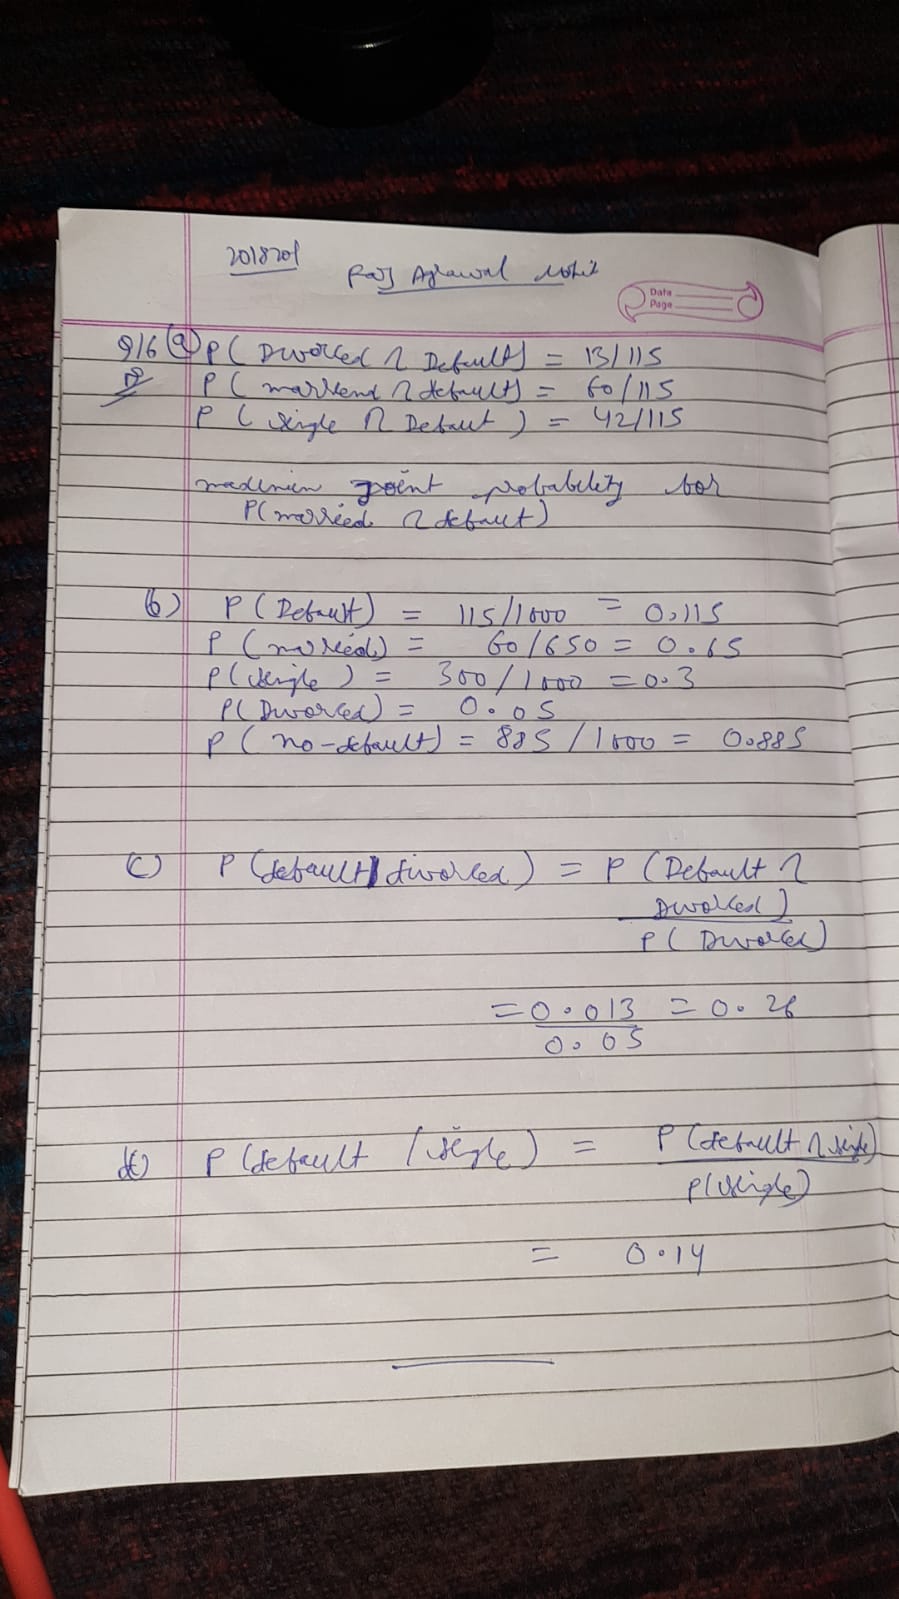 2018201
Raj Agrawal Mohit
Date
Page
Q16 (a) P ( Divorced ∩ Default) = 13/115
P ( married ∩ default) = 60/115
P ( single ∩ Default ) = 42/115
point probability for
P(married ∩ default)
b) P ( Default) = 115/1000 = 0.115
P ( married) = 60/650 = 0.65
P(single ) = 300/1000 = 0.3
P( Divorced) = 0.05
P ( no-default) = 885/1000 = 0.885
c) P (default| divorced) = P (Default ∩
Divorced)
P ( Divorced)
= 0.013 = 0.26
0.05
d) P (default / single) = P (default ∩ single)
P(single)
= 0.14